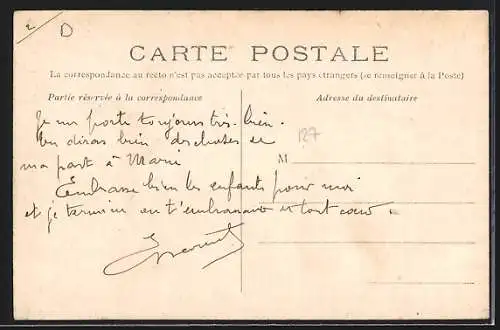 2
D
CARTE POSTALE
La correspondance au recto n'est pas acceptée par tous les pays étrangers (se renseigner à la Poste)
Partie réservée à la correspondance
Adresse du destinataire
Je me porte toujours très bien.
tu diras bien des choses de
ma part à Marie
127
M
Embrasse bien les enfants pour moi
et je termine en t'embrassant de tout cœur.